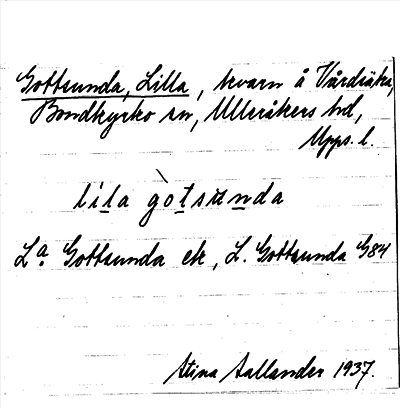 Gottsunda, Lilla, kvarn å Vårdsäta,
Bondkyrko sn, Ulleråkers hd,
Upps. l.
lila gotsunda
La Gottsunda ek, L. Gottsunda G84
Stina Sallander 1937.